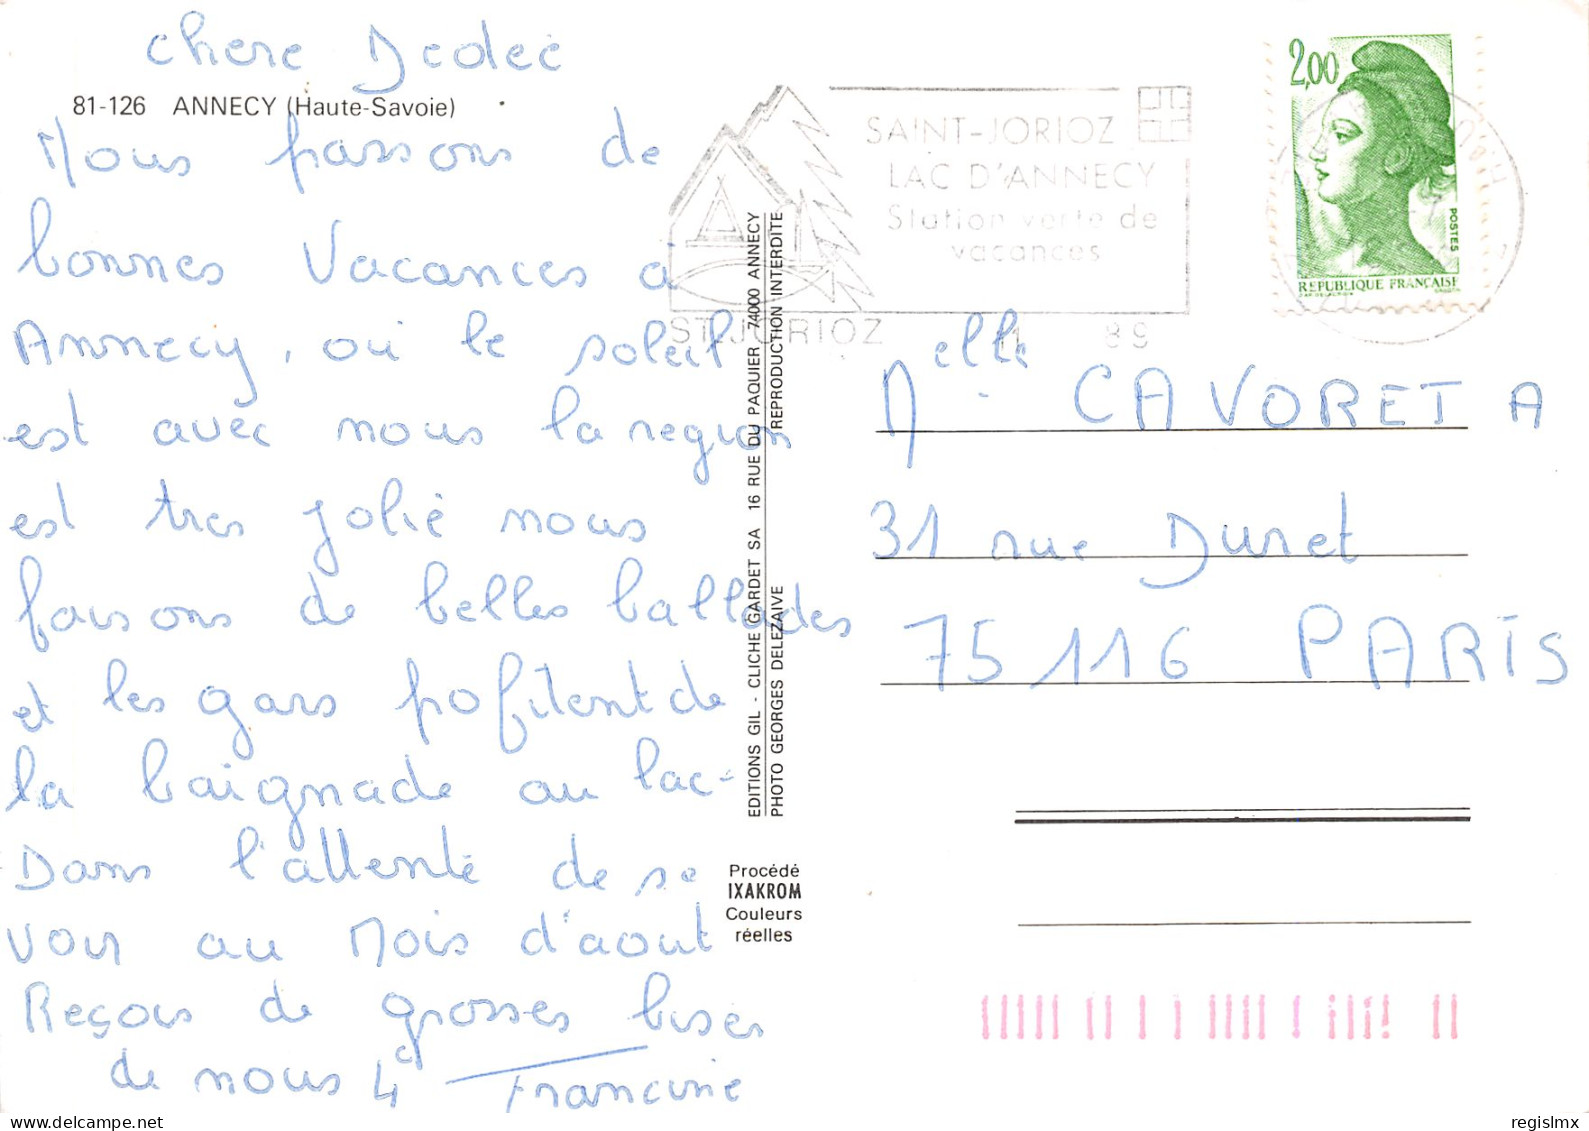 chere Dedée
81-126 ANNECY (Haute-Savoie)
Nous passons de
bonnes Vacances a
Annecy, où le soleil
est avec nous la region
est tres jolie nous
faisons de belles ballades
et les gars pofitent de
la baignade au lac-
Dans l'attente de se
voir au Mois d'aout
Reçois de grosses bises
de nous 4
Francine
EDITIONS GIL - CLICHE GARDET SA 16 RUE DU PAQUIER 74000 ANNECY
PHOTO GEORGES DELEZAIVE REPRODUCTION INTERDITE
Procédé
IXAKROM
Couleurs
réelles
SAINT-JORIOZ
LAC D'ANNECY
Station verte de
vacances
ST JORIOZ
11 89
2,00
POSTES
REPUBLIQUE FRANÇAISE
Melle CAVORET A
31 rue Duret
75116 PARIS
delcampe.net
regislmx